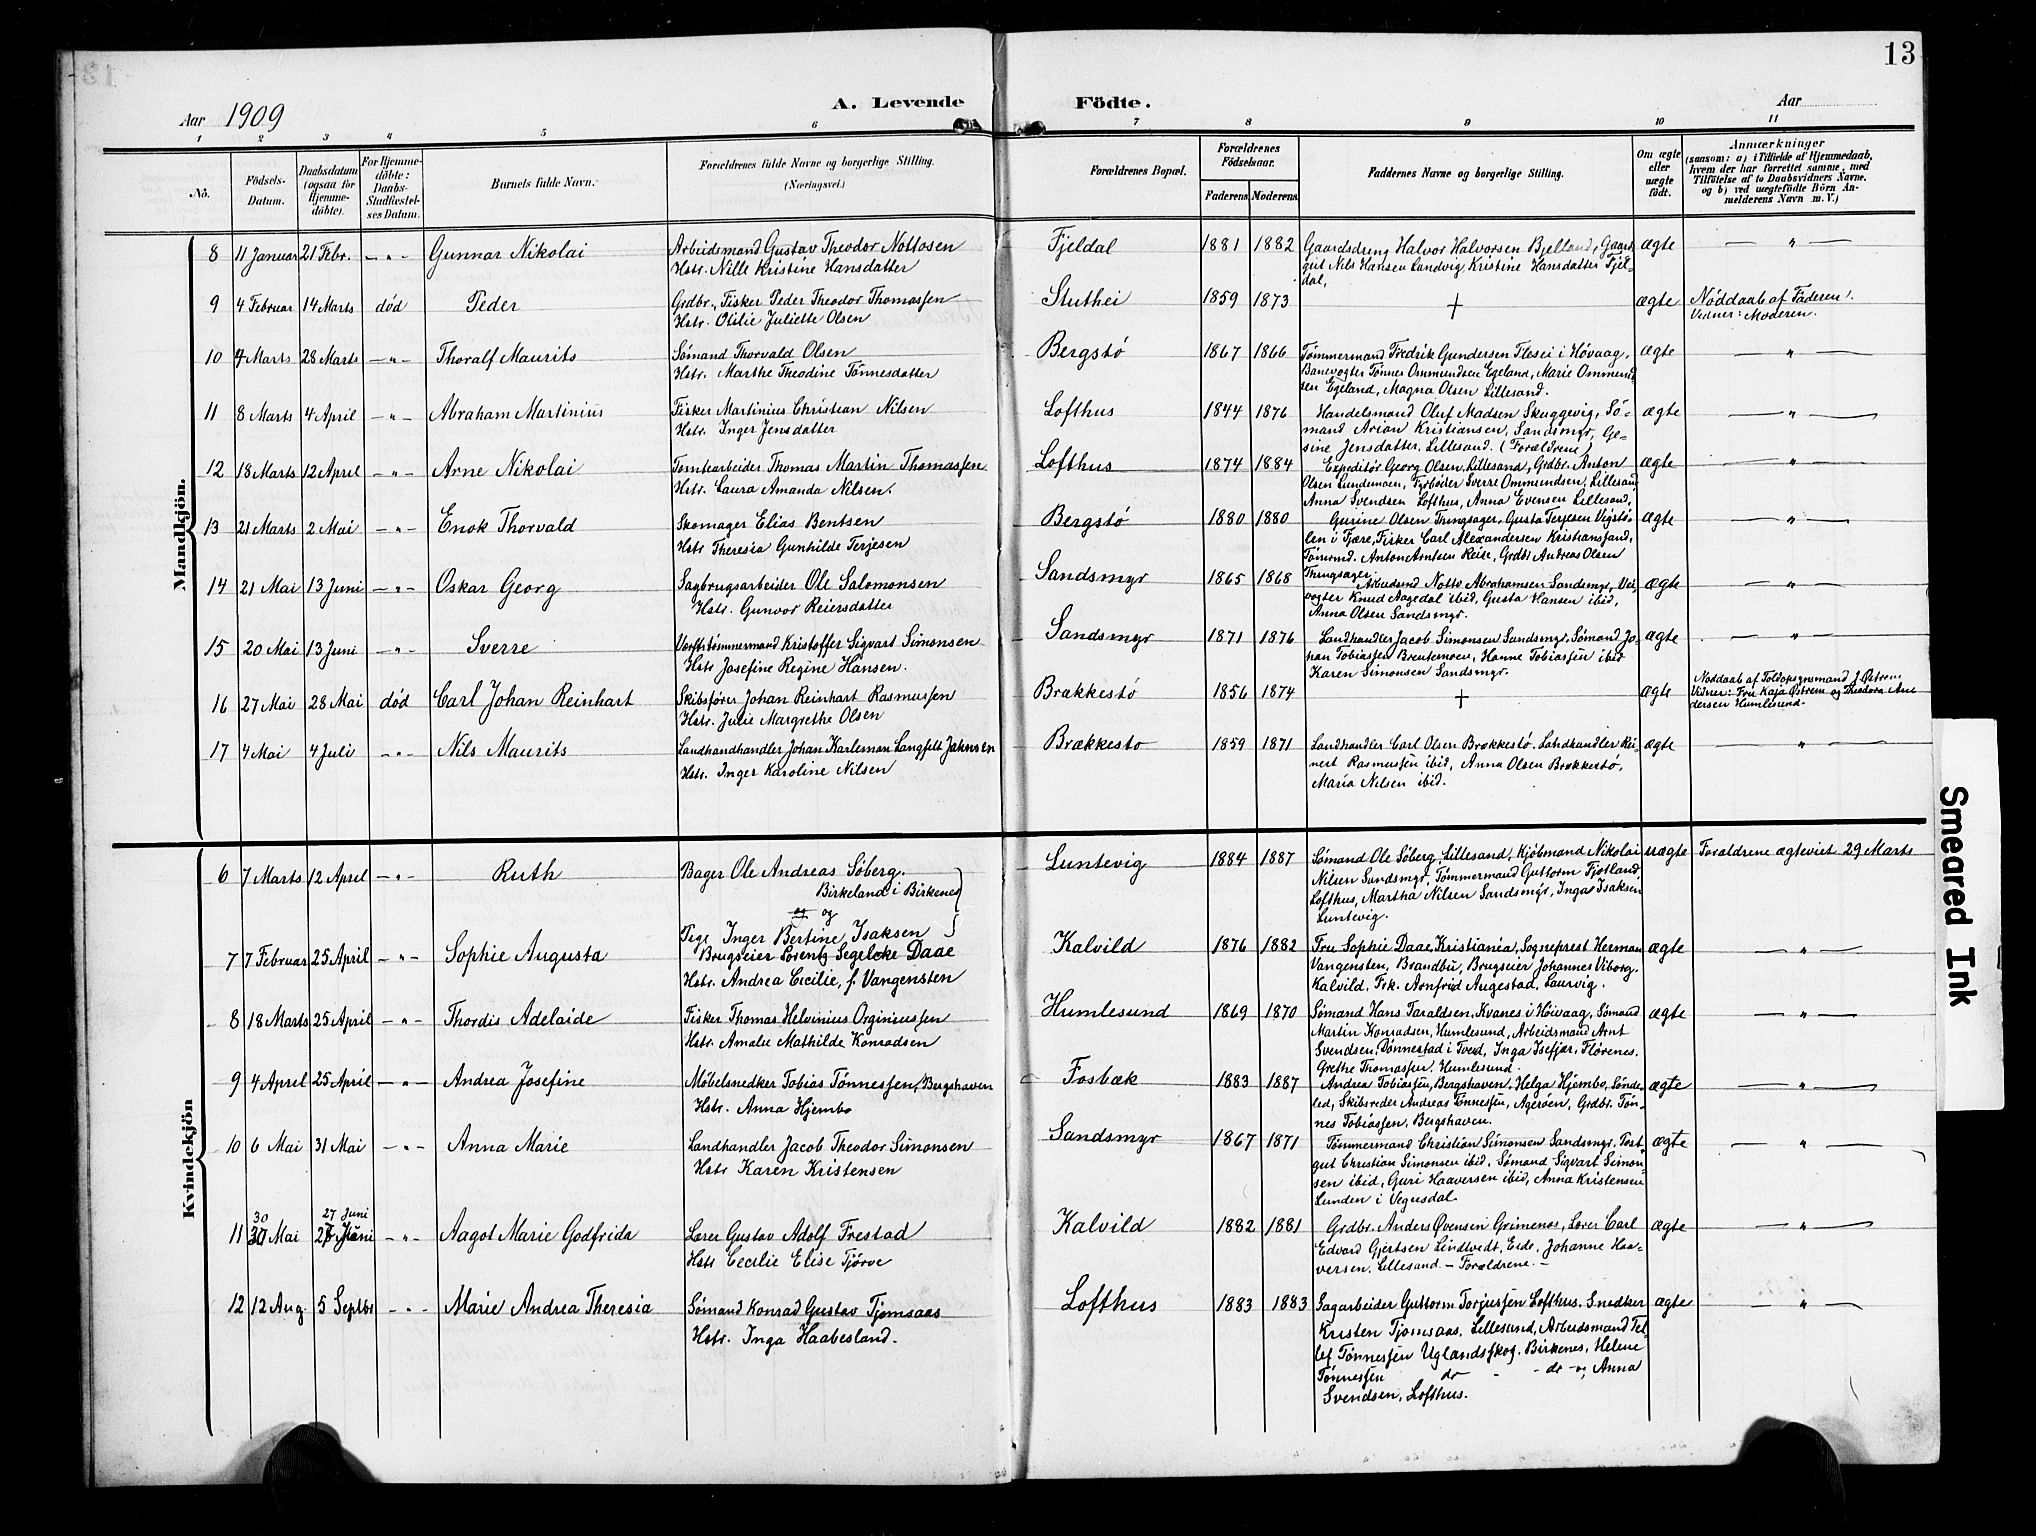 13
Aar 1909
A. Levende
Födte.
Aar
1 2 3 4 5 6 7 8 9 10 11
No.
Födsels-Datum.
Daabsdatum (ogsaa for Hjemmedöbte).
For Hjemmedöbte: Daabs-Stadfæstelses Datum.
Barnets fulde Navn.
Forældrenes fulde Navne og borgerlige Stilling. (Næringsvei.)
Forældrenes Bopæl.
Forældrenes Födselsaar.
Faderens. Moderens.
Faddernes Navne og borgerlige Stilling.
Om ægte eller uægte födt.
Anmærkninger
(saasom: a) i Tilfælde af Hjemmedaab, hvem der har forrettet samme, med Tilföielse af to Daabsvidners Navne, og b) ved uægtefödte Börn Anmelderens Navn m. V.)
Mandkjön.
8 11 Januar 21 Febr. — " — Gunnar Nikolai
Arbeidsmand Gustav Theodor Nottosen
Hstr. Nille Kristine Hansdatter
Fjeldal 1881 1882
Gaardsdreng Halvor Halvorsen Bjelland, Gaard
gut Nils Hansen Landvig, Kristine Hansdatter Fjel-
dal,
ægte — " —
9 4 Februar 14 Marts død Peder
Grdbr., Fisker Peder Theodor Thomassen
Hstr. Otilie Juliette Olsen
Stuthei 1859 1873 + ægte
Nøddaab af Faderen.
Vidner: Moderen.
10 4 Marts 28 Marts — " — Thoralf Maurits
Sömand Thorvald Olsen
Hstr. Marthe Theodine Tønnesdatter
Bergstø 1867 1866
Tømmermand Fredrik Gundersen Flesei i Høvaag,
Banevogter Tønnes Ommundsen Egeland, Marie Ommund
sen Egeland, Magna Olsen Lillesand.
ægte — " —
11 8 Marts 4 April — " — Abraham Martinius
Fisker Martinius Christian Nilsen
Hstr. Inger Jensdatter
Lofthus 1844 1876
Handelsmand Oluf Madsen Skuggevig, Sö-
mand Arian Kristiansen, Sandsmyr, Ge-
sine Jensdatter, Lillesand. (Forældrene)
ægte — " —
12 18 Marts 12 April — " — Arne Nikolai
Tomtearbeider Thomas Martin Thomassen
Hstr. Laura Amanda Nilsen.
Lofthus 1874 1884
Expeditør Georg Olsen, Lillesand, Grdbr. Anton
Olsen Lundemoen, Fyrbøder Sverre Ommundsen, Lillesand
Anna Svendsen Lofthus, Anna Evensen Lillesand,
ægte — " —
13 21 Marts 2 Mai — " — Enok Thorvald
Skomager Elias Bentsen
Hstr Theresia Gunhilde Terjesen
Bergstø 1880 1880
Gurine Olsen Thingsager, Gusta Terjesen Vigstø-
len i Fjære, Fisker Carl Alexandersen Kristianssand,
Tømmd. Anton Arntsen Reise, Grdbr. Andreas Olsen
Thingsager.
ægte — " —
14 21 Mai 13 Juni — " — Oskar Georg
Sagbrugsarbeider Ole Salomonsen
Hstr. Gunvor Reiersdatter
Sandsmyr 1865 1868
Arbeidsmd Notto Abrahamsen Sandsmyr, Vei-
vogter Knud Aagedal ibid, Gusta Hansen ibid,
Anna Olsen Sandsmyr.
ægte — " —
15 20 Mai 13 Juni — " — Sverre
Værftstømmermand Kristoffer Sigvart Simonsen
Hstr Josefine Regine Hansen.
Sandsmyr 1871 1876
Landhandler Jacob Simonsen Sandsmyr, Sömand Jo-
han Tobiassen Brentemoen, Hanne Tobiassen ibid
Karen Simonsen Sandsmyr.
ægte — " —
16 27 Mai 28 Mai død Carl Johan Reinhart
Skibsfører Johan Reinhart Rasmussen
Hstr. Julie Margrethe Olsen
Brækkestø 1856 1874 + ægte
Nøddaab af Toldopsynsmand J. Østrem
Vidner: Fru Kaja Østrem og Theodora An-
dersen Humlesund.
17 4 Mai 4 Juli — " — Nils Maurits
Landhandhandler Johan Karleman Langfelt Jahnsen
Hstr. Inger Karoline Nilsen
Brækkestø 1859 1871
Landhandler Carl Olsen Brækkestø, Landhandler Rei-
nert Rasmussen ibid, Anna Olsen Brækkestø,
Maria Nilsen ibid.
ægte — " —
Kvindekjön
6 7 Marts 12 April — " — Ruth
Bager Ole Andreas Søberg.
Birkeland i Birkenes
og og
Pige Inger Bertine Isaksen
Luntevig 1884 1887
Sømand Ole Söberg, Lillesand, Kjöbmand Nikolai
Nilsen Sandsmyr, Tømmermand Guttorm Fjotland
Lofthus, Martha Nilsen Sandsmyr, Inga Isaksen
Luntevig.
uægte Forældrene ægteviet 29 Marts
7 7 Februar 25 April — " — Sophie Augusta
Brugseier Lorentz Segelcke Daae
Hstr. Andrea Cecilie, f. Vangensten
Kalvild 1876 1882
Fru Sophie Daae, Kristiania, Sogneprest Herman
Vangensten, Brandbu, Brugseier Johannes Viborg.
Kalvild, Frk. Arnfrid Augestad, Laurvig.
ægte — " —
8 18 Marts 25 April — " — Thordis Adelaide
Fisker Thomas Helvinius Orginiussen
Hstr. Amalie Mathilde Konradsen
Humlesund 1869 1870
Sømand Hans Taraldsen, Kvanes i Høivaag, Sømand
Martin Konradsen, Humlesund, Arbeidsmand Arnt
Svendsen, Dønnestad i Tveid, Inga Isefjær, Flørenes.
Grethe Thomassen, Humlesund.
ægte — " —
9 4 April 25 April — " — Andrea Josefine
Møbelsnedker Tobias Tønnessen, Bergshaven
Hstr. Anna Hjembo
Fosbæk 1883 1887
Andrea Tobiassen, Bergshaven, Helga Hjembo, Sønde-
led, Skibsreder Andreas Tønnessen, Agerøen, Grdbr. Tön-
nes Tobiassen, Bergshaven.
ægte — " —
10 6 Mai 31 Mai — " — Anna Marie
Landhandler Jacob Theodor Simonsen
Hstr Karen Kristensen
Sandsmyr 1867 1871
Tømmermand Christian Simonsen Sandsmyr, Post-
gut Christian Simonsen ibid, Sømand Sigvart Simon-
sen ibid, Guri Haaversen ibid, Anna Kristensen
Lunden i Vegusdal.
ægte — " —
30 27 Juni
11 30 Mai 27 Juni — " — Aagot Marie Godfrida
Lærer Gustav Adolf Frestad
Hstr Cecilie Elise Tjörve
Kalvild 1882 1881
Grdbr. Anders Øvensen Grimenes, Lærer Carl
Edvard Gjertsen Lindtvedt, Eide, Johanne Haa-
versen, Lillesand. — Forældrene. —
ægte — " —
12 12 Aug 5 Septbr — " — Marie Andrea Theresia
Sømand Konrad Gustav Tjomsaas
Hstr. Inga Haabesland.
Lofthus 1883 1883
Sagarbeider Guttorm Torjussen Lofthus. Snedker
Kristen Tjomsaas, Lillesund, Arbeidsmand Tel-
lef Tønnessen Uglandsskog, Birkenes, Helene
Tønnessen do - - do -, Anna
Svendsen, Lofthus.
ægte — " —
Smeared Ink